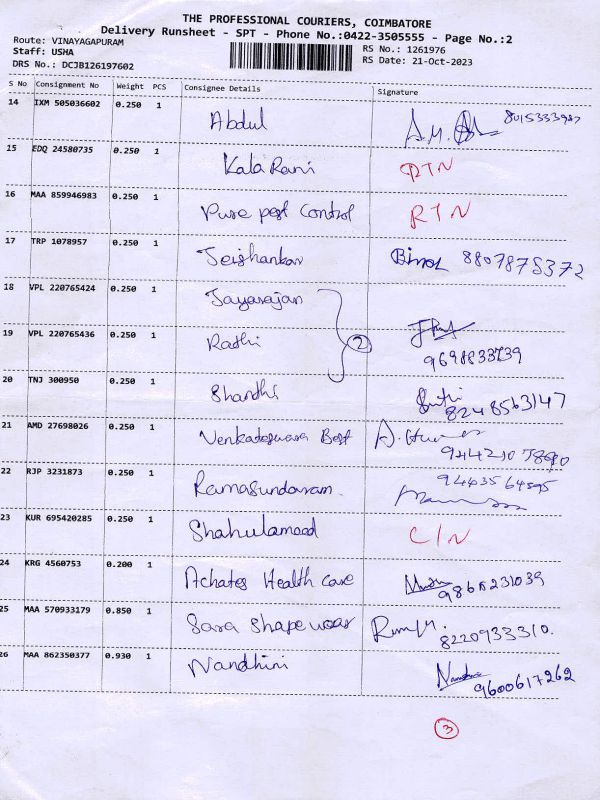 THE PROFESSIONAL COURIERS, COIMBATORE
Delivery Runsheet - SPT - Phone No.:0422-3505555 - Page No.:2
Route: VINAYAGAPURAM
Staff: USHA
DRS No.: DCJB126197602
RS No.: 1261976
RS Date: 21-Oct-2023
S No Consignment No Weight PCS Consignee Details Signature
14 IXM 505036602 0.250 1 Abdul
15 EDQ 24580735 0.250 1 Kala Rani RTN
16 MAA 859946983 0.250 1 Pure pest Control RTN
17 TRP 1078957 0.250 1 Jeishankar 8807875372
18 VPL 220765424 0.250 1 Jayarajan
19 VPL 220765436 0.250 1 Rathi 2 9698833739
20 TNJ 300950 0.250 1 Shandhi 8248563147
21 AMD 27698026 0.250 1 Venkadeswara Best
22 RJP 3231873 0.250 1 Ramasundaram
23 KUR 695420285 0.250 1 Shahulameed C/N
24 KRG 4560753 0.200 1 Achates Health care
25 MAA 570933179 0.850 1 Sara Shape wear 8220933310.
26 MAA 862350377 0.930 1 Nandhini 9600617262
3